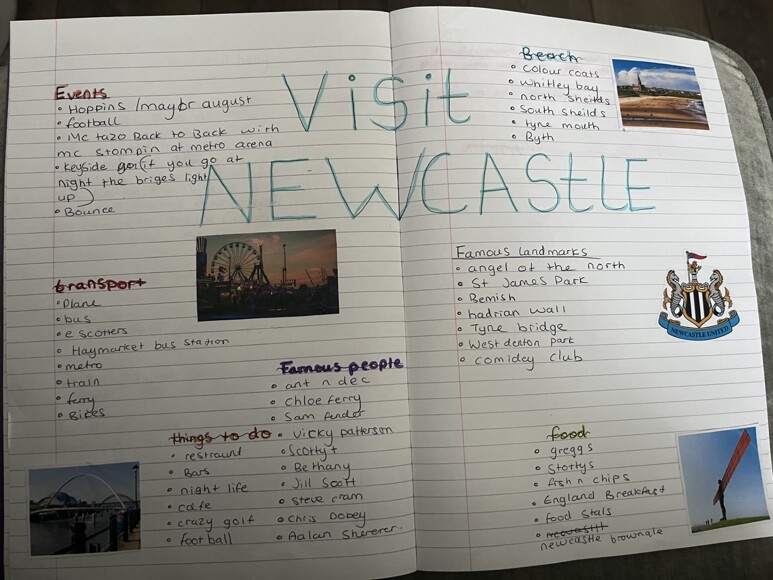 Visit
NEWCAStLE
Events
• Hoppins /mayor august
• football
• Mc tazo Back to Back with
mc stompin at metro arena
• Keyside (if you go at
night the briges light
up)
• Bounce
Beach
• Colour coats
• Whitley bay
• north sheilds
• South sheilds
• tyne mouth
• Byth
transport
• Plane
• bus
• e scoters
• Haymarket bus station
• metro
• train
• ferry
• Bikes
Famous landmarks
• angel of the north
• St James Park
• Bemish
• hadrian wall
• Tyne bridge
• West denton park
• comidey club
NEWCASTLE UNITED
Famous people
• ant n dec
• Chloe ferry
• Sam fender
• Vicky patterson
• Scotty t
• Bethany
• Jill Scott
• Steve cram
• Chris Dobey
• Aalan Shererer.
things to do
• restraunt
• Bars
• night life
• cafe
• crazy golf
• football
food
• greggs
• Stottys
• fish n chips
• England Breakfast
• food stals
• newcastle brownale